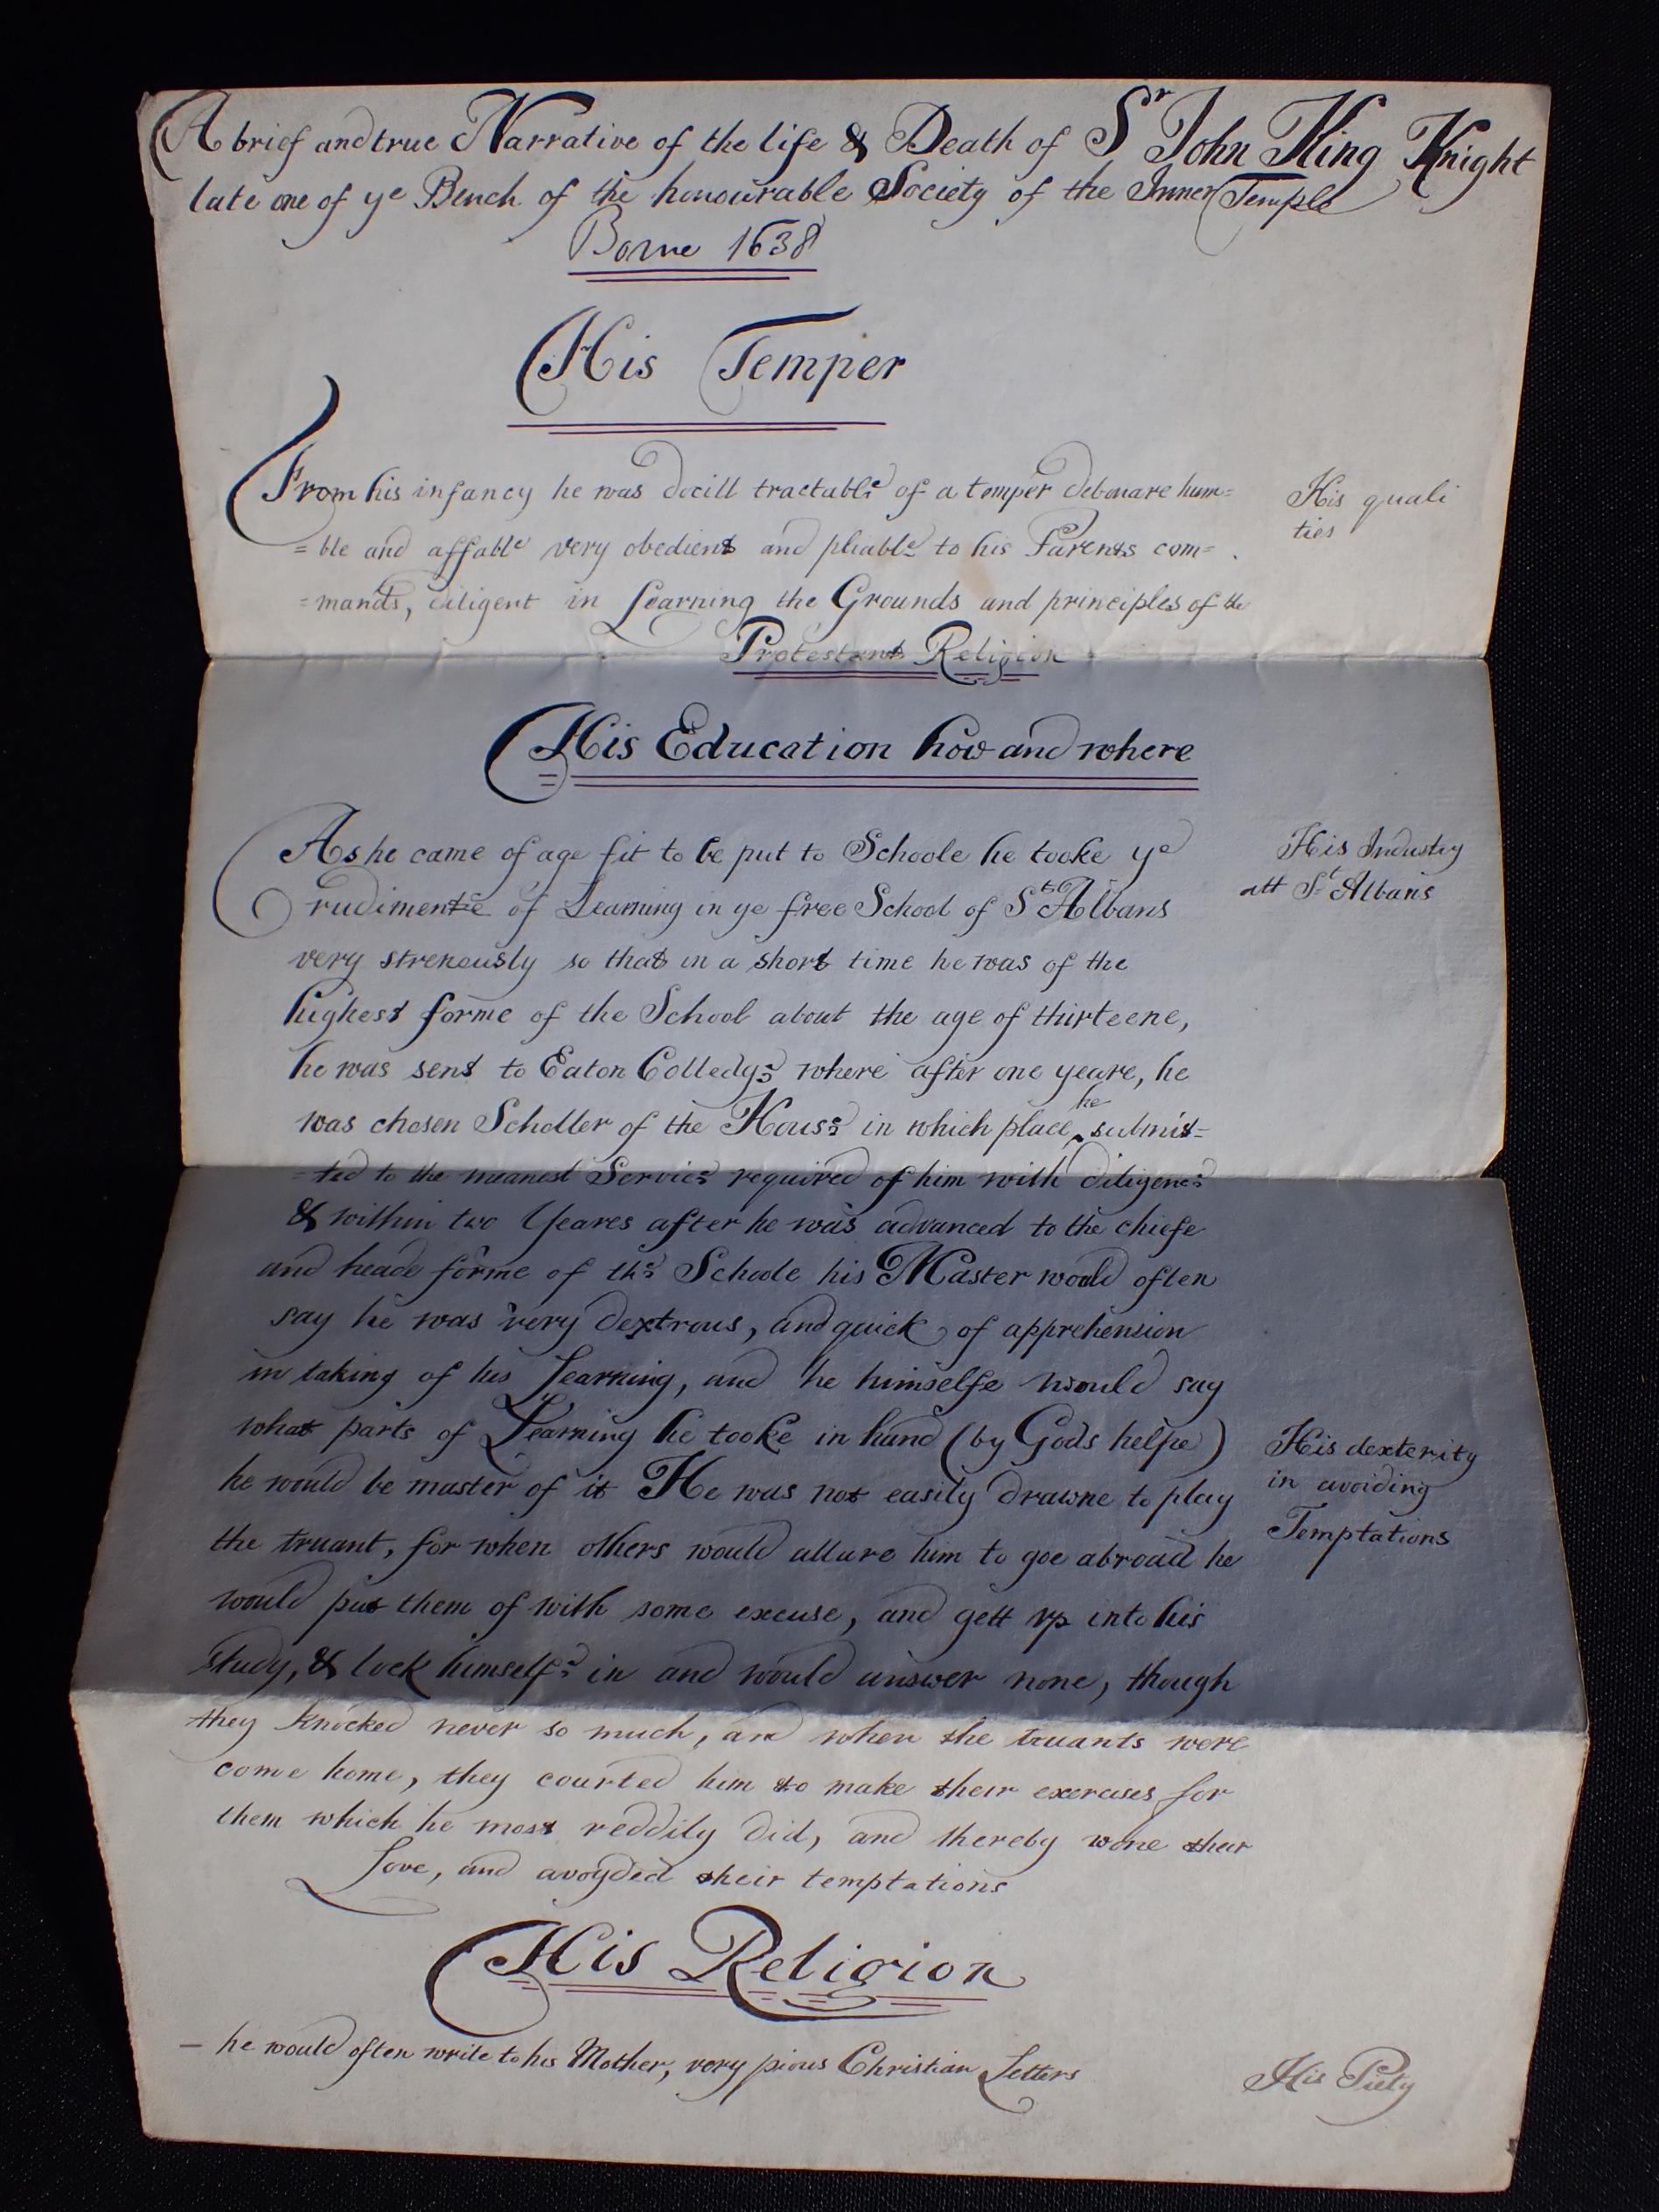 A brief and true Narrative of the life & Death of Sr John King Knight
late one of ye Bench of the honourable Society of the Inner Temple
Borne 1638
His Temper
From his infancy he was docill tractable of a temper debonare hum=
=ble and affable very obedient and pliable to his Parents com=
=mands, diligent in Learning the Grounds and principles of the
Protestant Religion
His quali
ties
His Education how and where
As he came of age fit to be put to Schoole he tooke ye
rudimente of Learning in ye free School of St Albans
very strenously so that in a short time he was of the
highest forme of the School about the age of thirteene,
he was sent to Eaton Colledge where after one yeare, he
was chosen Scholler of the House in which place he submit=
=ted to the meanest Service required of him with diligence
& within two Yeares after he was advanced to the chiefe
and heade forme of the Schoole his Master would often
say he was very dextrous, and quick of apprehension
in taking of his Learning, and he himselfe would say
what parts of Learning he tooke in hand (by Gods helpe)
he would be master of it He was not easily drawne to play
the truant, for when others would allure him to goe abroad he
would put them of with some excuse, and gett vp into his
study, & lock himselfe in and would answer none, though
they knocked never so much, and when the truants were
come home, they courted him to make their exercises for
them which he most reddily did, and thereby wone their
Love, and avoyded their temptations
His Industry
att St Albans
His dexterity
in avoiding
Temptations
His Religion
— he would often write to his Mother, very pious Christian Letters
His Piety